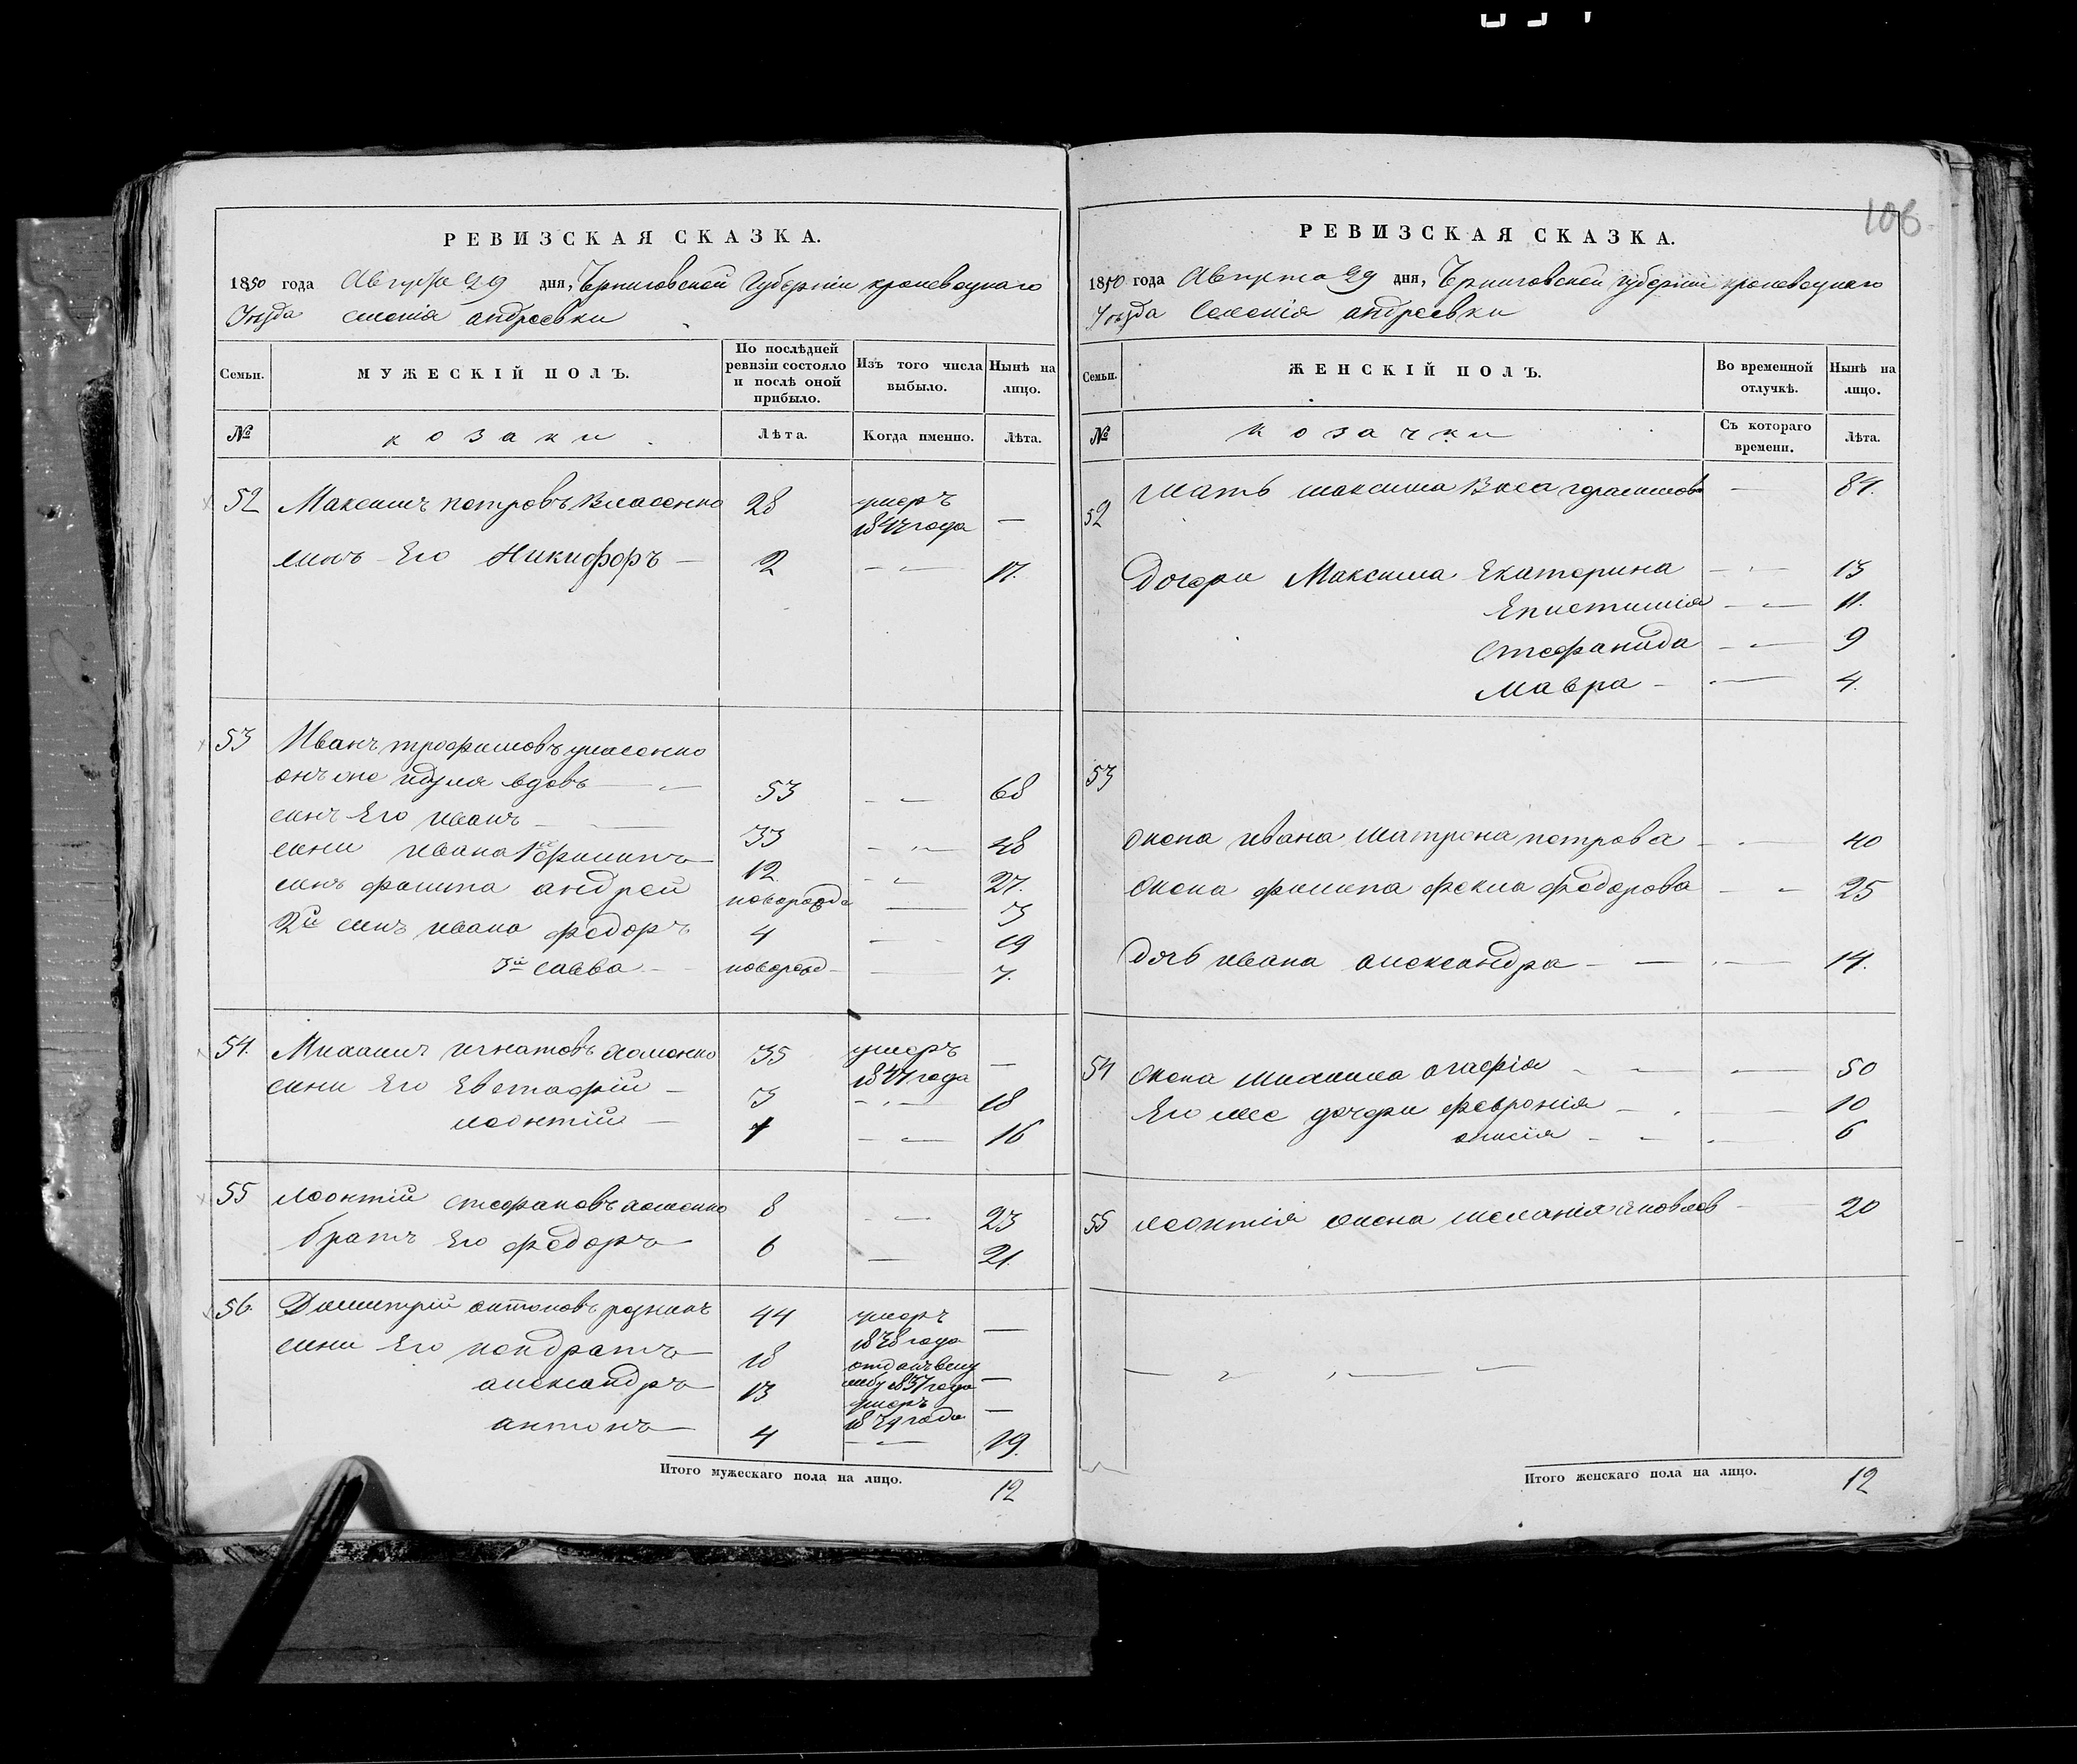 106
РЕВИЗСКАЯ СКАЗКА.
1850 года Августа 29 дня, Черниговской Губерніи кролевецкаго
Уезда селенія андреевки
Семьи. МУЖЕСКІЙ ПОЛЪ. По послѣдней ревизіи состояло и послѣ оной прибыло. Изъ того числа выбыло. Нынѣ на лицо.
№ козаки Лѣта. Когда именно. Лѣта.
52 Максимъ петровъ Власенко 28 умеръ 1847 года —
синъ Его Никифоръ — 2 — 17.
53 Иванъ трофимовъ
онъ же вдовъ 53 — 68
синъ Его иванъ 33 — 48
сини ивана 1й филипъ 12 — 27.
синъ филипа андрей новорожде — 3
2й синъ ивана федоръ 4 — 19
3й савва новорожд — 7.
54. Михаилъ игнатовъ хоменко 35 умеръ 1847 года —
сини Его Евстафій — 3 — 18
леонтій — 1 — 16
55 леонтій стефановъ хоменко 8 — 23
братъ Его федоръ 6 — 21.
56. Димитрій антоновъ 44 умеръ 1848 года —
сини Его кондратъ 18 отданъ вслу жбу 1837 года —
александръ 13 умеръ года —
антонъ 4 — 19.
Итого мужескаго пола на лицо. 12
РЕВИЗСКАЯ СКАЗКА.
1850 года Августа 29 дня, Черниговской губерніи кролевецкаго
Уезда Селенія андреевки
Семьи. ЖЕНСКІЙ ПОЛЪ. Во временной отлучкѣ. Нынѣ на лицо.
№ козачки Съ котораго времени. Лѣта.
52 мать максима Васа герасимов — 84.
Дочери Максима Екатерина — 13
Епистимія — 11.
Стефанида — 9
Мавра — 4.
53
жена ивана Матрона петрова — 40
жена филипа фекла федорова — 25
дочь ивана александра — 14.
54 жена михаила агафія — 50
Его же дочери февронія — 10
анисія — 6
55 леонтія жена меланія яковлев — 20
Итого женскаго пола на лицо. 12